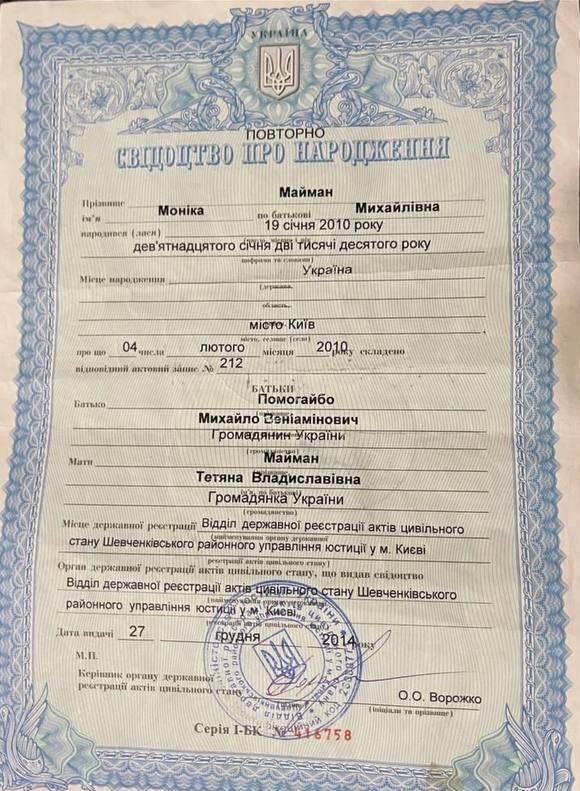 УКРАЇНА
ПОВТОРНО
СВІДОЦТВО ПРО НАРОДЖЕННЯ
Прізвище Майман
ім'я Моніка по батькові Михайлівна
народився (лася) 19 січня 2010 року
дев'ятнадцятого січня дві тисячі десятого року
цифрами та словами)
Місце народження Україна
(держава,
область,
місто Київ
місто, селище (село)
про що 04 числа лютого місяця 2010 року складено
відповідний актовий запис № 212
БАТЬКИ
Батько Помогайбо
Михайло Веніамінович
Громадянин України
Мати Майман
Тетяна Владиславівна
(ім'я, по батькові)
Громадянка України
(громадянство)
Місце державної реєстрації Відділ державної реєстрації актів цивільного
(найменування органу державної
стану Шевченківського районного управління юстиції у м. Києві
реєстрації актів цивільного стану)
Орган державної реєстрації актів цивільного стану, що видав свідоцтво
Відділ державної реєстрації актів цивільного стану Шевченківського
районного управління юстиції у м. Києві
реєстрації актів цивільного стану)
Дата видачі 27 грудня 2014 року
М.П.
Керівник органу державної
реєстрації актів цивільного стану О.О. Ворожко
(ініціали та прізвище)
Серія І-БК № 416758